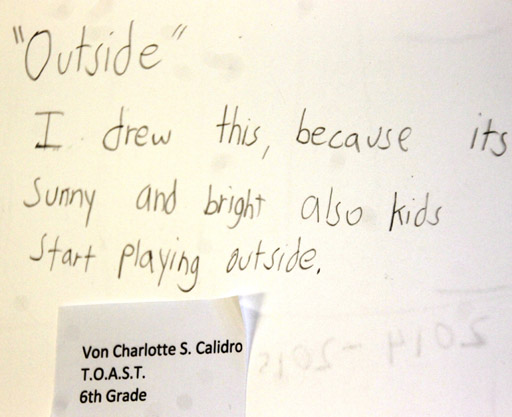 "Outside"
I drew this, because its
Sunny and bright also kids
Start playing outside.
Von Charlotte S. Calidro
T.O.A.S.T.
6th Grade
2014-2015